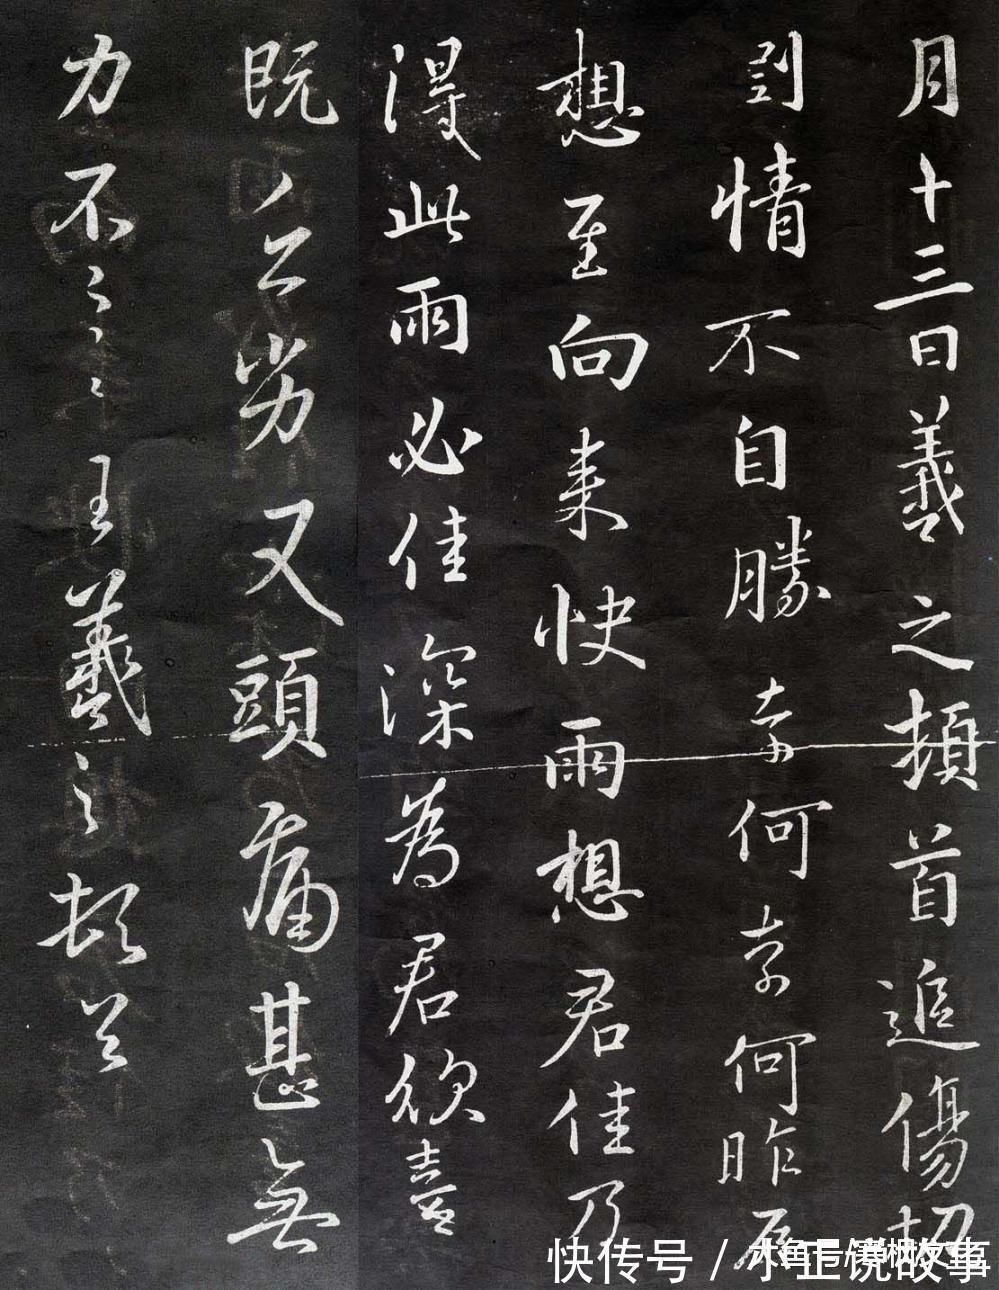 月十三日羲之頓首追傷切
情不自勝奈何奈何昨辰
想至向来快雨想君佳乃
得此雨必佳深為君欣喜
既劣又頭痛甚無
力不王羲之頓首
快传号 / 说故事